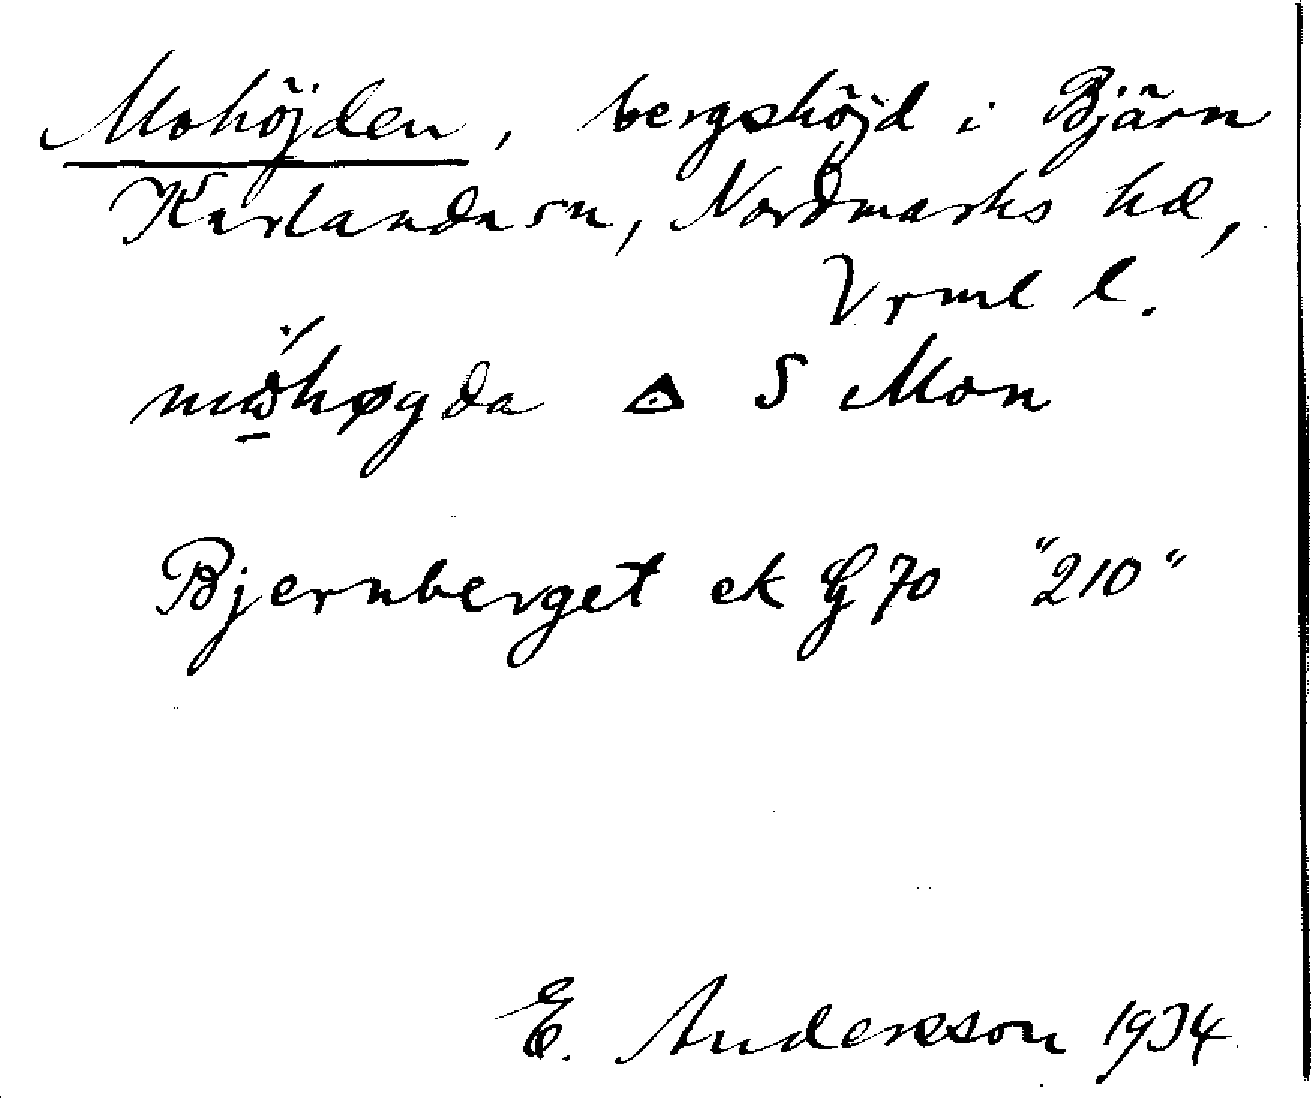 Mohöjden, bergshöjd i Bjärn
Karlanda sn, Nordmarks hd,
Vrml l.
høgda △ S Mon
Bjernberget ek G 70 "210"
E. Andersson 1934